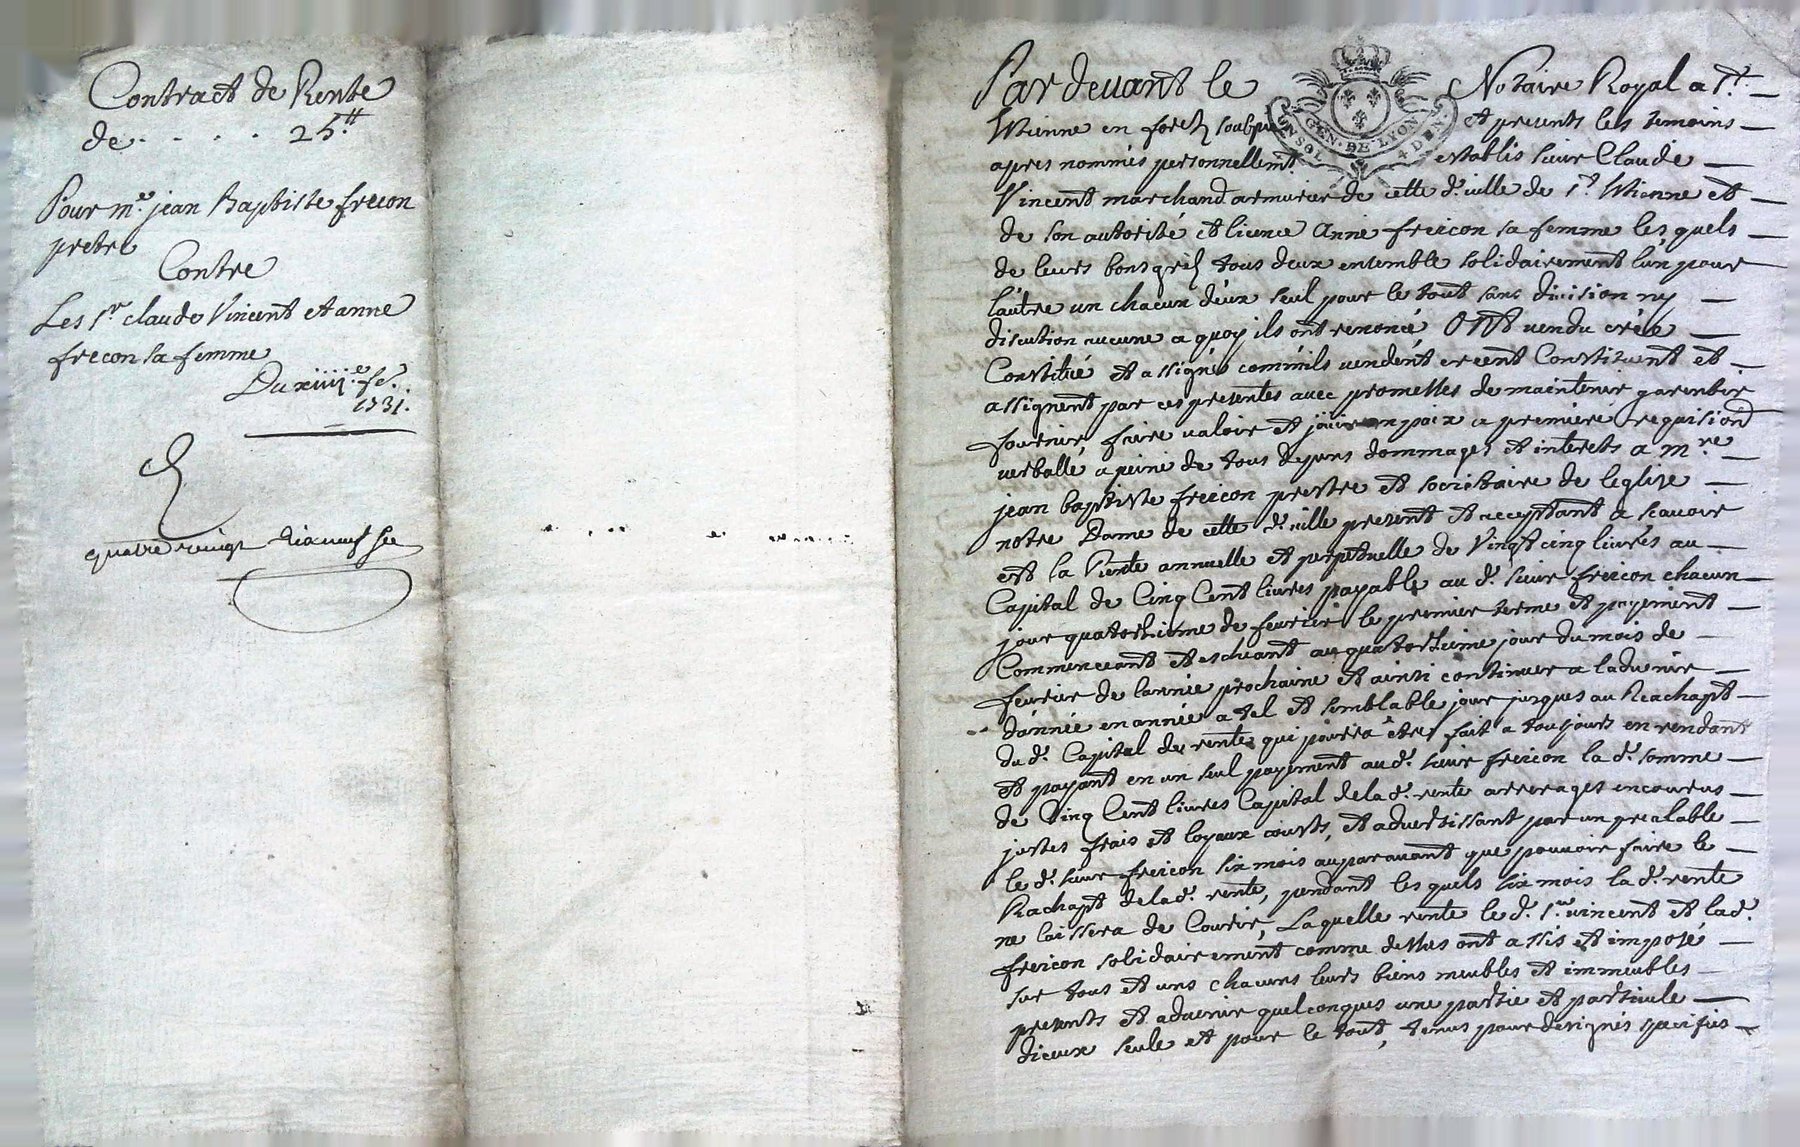 Contract de Rente
de . . . . 25.tt
Pour me. jean Baptiste frecon
pretre
Contre
Les sr. claude Vincent et anne
frecon sa femme
Du xiiii.e fe.r
1731.
quatre vingt dixneuf
Par devant le Notaire Royal a St. —
Etienne en forez soubz et presents les temoins —
apres nommés personnellemt. establis sieur Claude —
Vincent marchand armurier de cette d. ville de St. Etienne et —
de son autorité et licence Anne freicon sa femme les quels —
de leurs bons grés tous deux ensemble solidairement l'un pour
l'autre un chacun d'eux seul pour le tout sans division ny —
discution aucune a quoy ils ont renoncé Ont vendu créé —
Constitué et assigné comm'ils vendent creent Constituent et —
assignent par ces presentes avec promesses de maintenir garentir
fournir faire valoir et jouir en paix a premiere requision
verballe a peine de tous depens dommages et interets a m.re —
jean baptiste freicon prestre et societaire de leglize —
notre Dame de cette d. ville present et acceptant a scavoir
est la Rente annuelle et perpetuelle de Vingt cinq livres au —
Capital de Cinq Cent livres payable au d. sieur freicon chacun —
jour quatorzieme de fevrier le premier terme et payement —
Commenceant et escheant au quatorzieme jour du mois de —
fevrier de lannée prochaine et ainsi continuer a ladvenir —
d'année en année a tel et semblable jour jusques au Reachapt —
du d. Capital de rente qui pourra être fait a toujours en rendant
et payant en un seul payement au d. sieur freicon la d. somme —
de Cinq Cent livres Capital de la d. rente arrerages encourus —
justes frais et loyaux cousts, et advertissant par un prealable —
le d. sieur freicon six mois auparavant que pouvoir faire le —
Rachapt de la d. rente, pendant les quels six mois la d. rente
ne laissera de Courir, Laquelle rente le d. sr. vincent et la d.
freicon solidairement comme dessus ont assis et imposé —
sur tous et uns chacuns leurs biens meubles et immeubles —
presents et advenir quelconques une partie et particule —
dieceux seule et pour le tout, tenus pour designés specifiés —